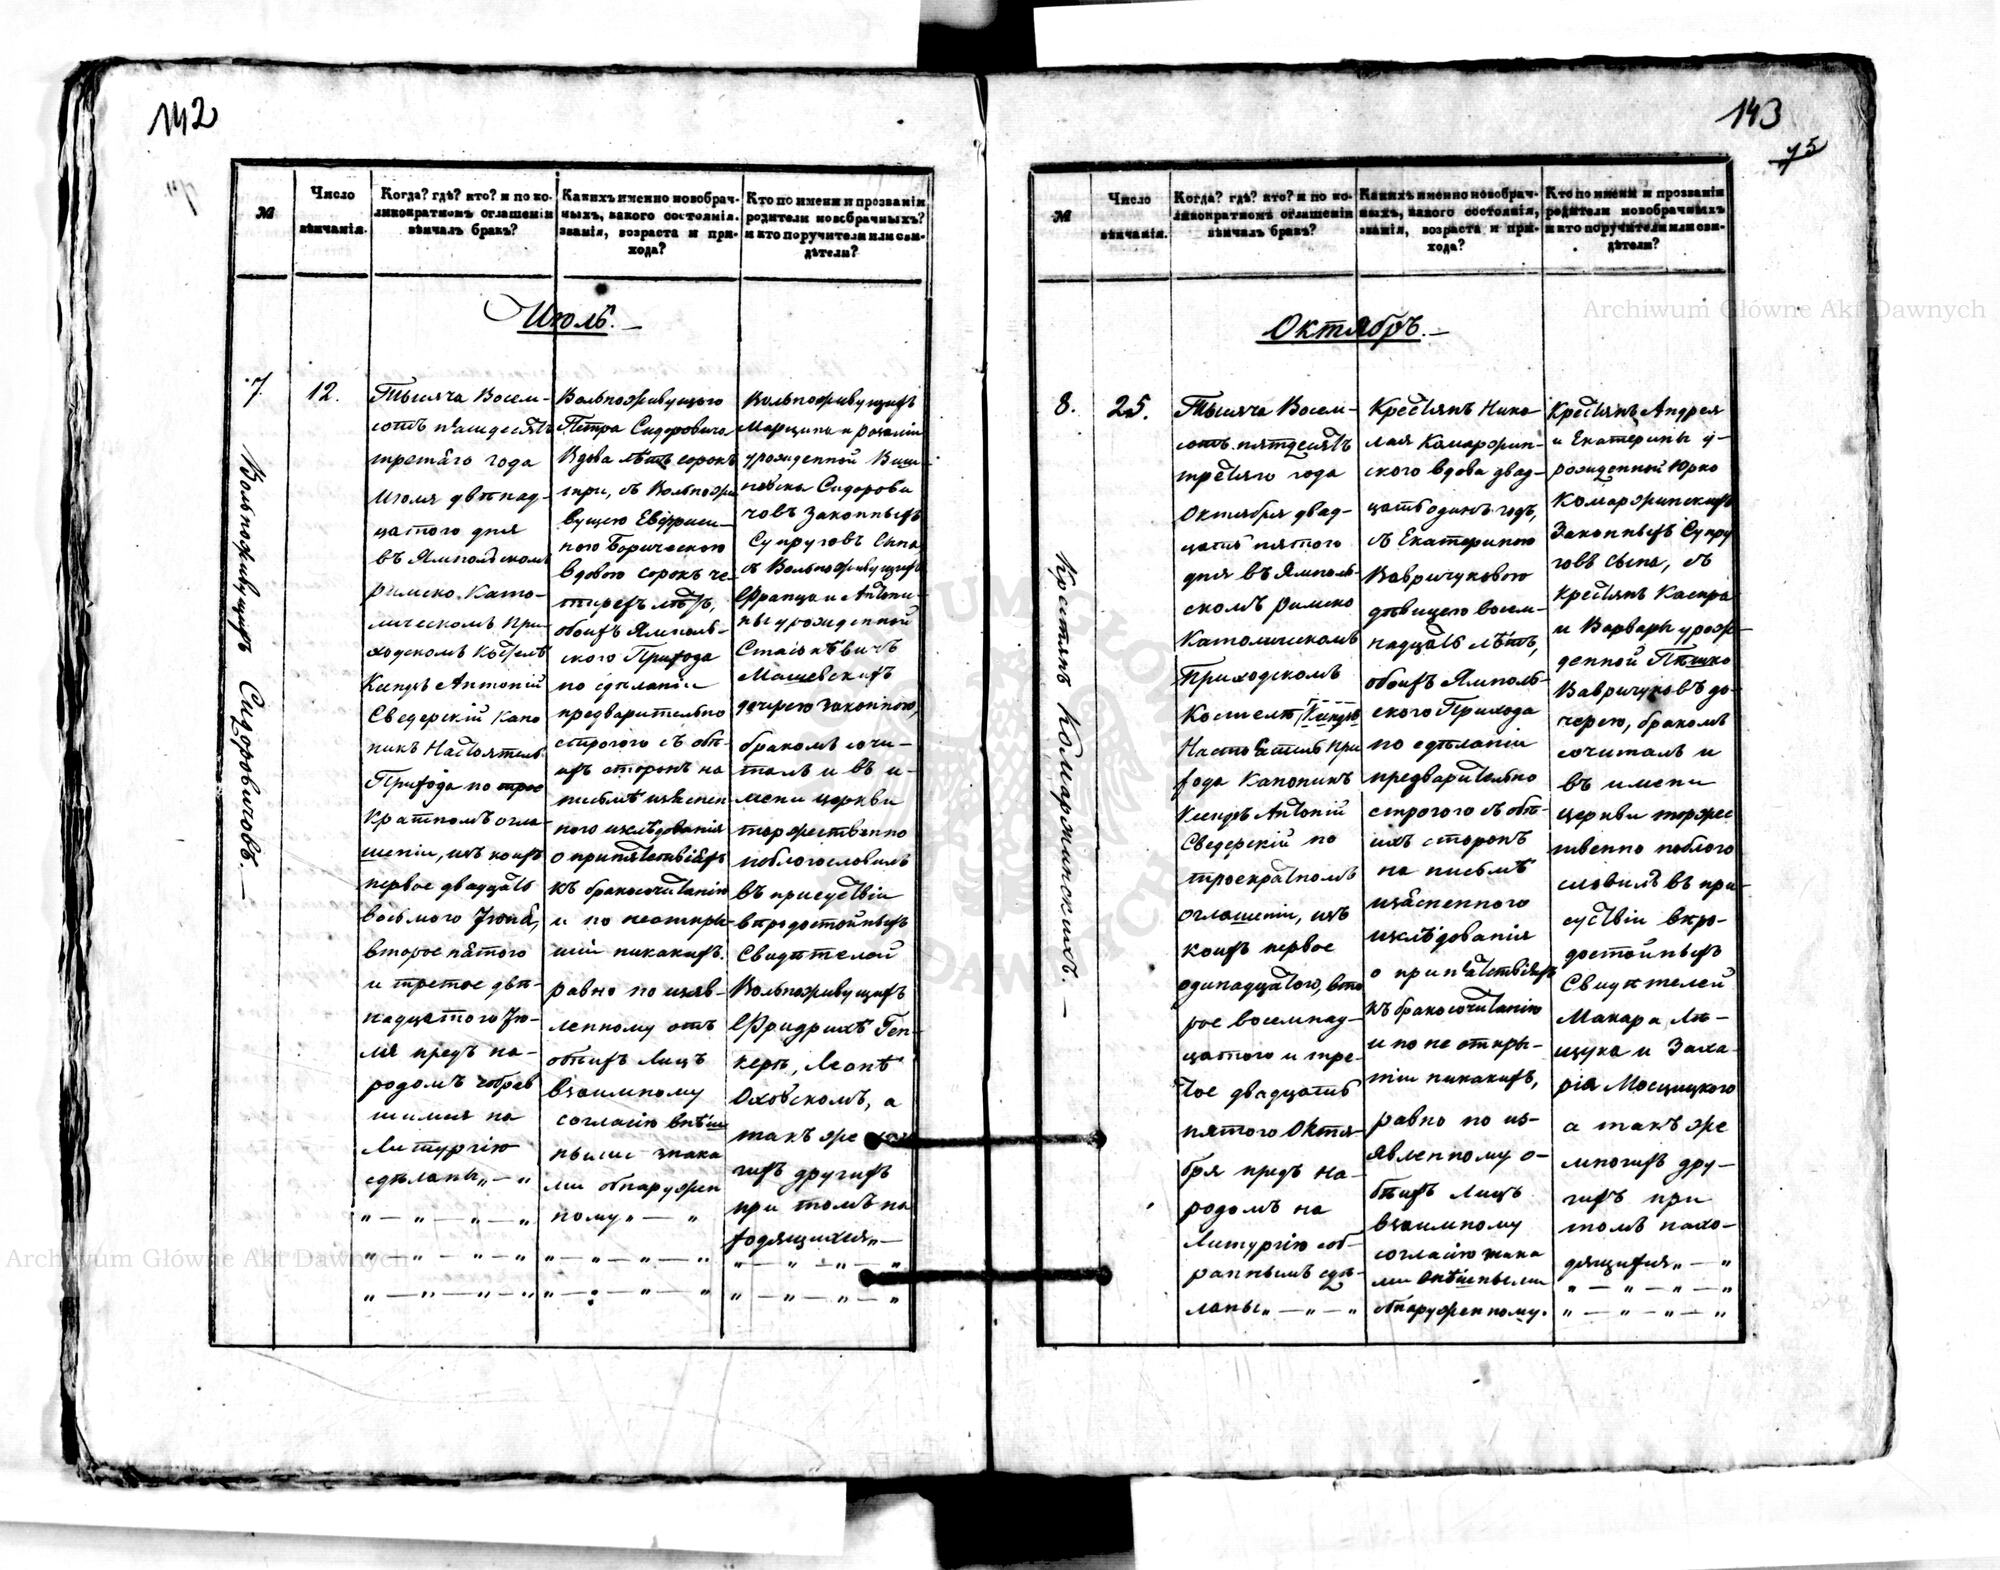 142
№
Число
вѣнчанія.
Когда? гдѣ? кто? и по ко-
ликократномъ оглашеніи
вѣнчалъ бракъ?
Какихъ именно новобрач-
ныхъ, какого состоянія,
званія, возраста и при-
хода?
Кто по имени и прозванію
родители новобрачныхъ?
и кто поручители или сви-
дѣтели?
Июль.
7.
Вольноживущихъ Сидоровичовъ.
12.
Тысяча Восем-
сотъ пятдесятъ
третяго года
Июля двѣнад-
цатого дня
въ Ямпольскомъ
римско Като-
лическомъ При-
ходскомъ Костелѣ
Ксендзъ Антоній
Сведерскій Кано
никъ Настоятель
Прихода по трое
кратномъ огла-
шеніи, изъ коихъ
первое двадцать
восьмого Іюня,
второе пятого
и третое двѣ-
надцатого Ію-
ля предъ на-
родомъ собрав
шимся на
Литургію
сдѣланы „ — „
„ — „ — „ — „
„ — „ — „ — „
„ — „ — „ — „
Вольноживущого
Петра Сидоровича
Вдова лѣтъ сорокъ
три, съ Вольножи
вущею Евфроси-
ною
вдовою сорокъ че-
тирехъ лѣтъ,
обоихъ Ямполь-
ского Прихода
по сдѣланіи
предварительно
строгого съ обѣ-
ихъ сторонъ на
письмѣ изъяснен
ного изслѣдованія
о препятствіяхъ
къ бракосочитанію
и по неоткры-
тіи никакихъ.
равно по изяв-
ленному отъ
обѣихъ Лицъ
взаимному
согласію внѣш
ными знака
ми обнаружен
ному „ — „
„ — „ — „ — „
„ — „ — „ — „
Вольноживущихъ
Марцина и Розаліи
урожденной Виш-
невска Сидорови
човъ Законныхъ
Супруговъ Сына
съ Вольноживущихъ
Франца и Антони-
ны урожденной
Стасѣкѣвичъ
Машевскихъ
дочерею законною,
бракомъ сочи-
талъ и въ и-
мени церкви
торжественно
поблогословилъ
въ присуствіи
вѣродостойныхъ
Свидѣтелей
Вольноживущихъ
Фридрихѣ Ген-
керѣ, Леонѣ
Оховскомъ, а
такъ же
гихъ другихъ
при томъ на
ходящихся „ —
„ — „ — „ — „
„ — „ — „ — „
143
75
№
Число
вѣнчанія.
Когда? гдѣ? кто? и по ко-
ликократномъ оглашеніи
вѣнчалъ бракъ?
Какихъ именно новобрач-
ныхъ, какого состоянія,
званія, возраста и при-
хода?
Кто по имени и прозванію
родители новобрачныхъ
и кто поручители или сви-
дѣтели?
Октябръ.
8.
Крестянъ Комаржинскихъ.
25.
Тысяча Восем-
сотъ пятдесятъ
третяго года
Октября двад-
цать пятого
дня въ Ямполь-
скомъ римско
Католическомъ
Приходскомъ
Костелѣ Ксендзъ
Настоятель При
хода Каноникъ
Ксендзъ Антоній
Сведерскій по
троекратномъ
оглашеніи, изъ
коихъ первое
одинадцатого, вто
рое восемнад-
цатого и тре-
тое двадцать
пятого Октя-
бря предъ на-
родомъ на
Литургію соб-
раннымъ сдѣ-
ланы „ — „ — „
Крестянъ Нико
лая Комаржин-
ского вдова двад-
цать одинъ годъ,
съ Екатериною
Вавричуковою
дѣвицею восем-
надцать лѣтъ,
обоихъ Ямполь-
ского Прихода
по сдѣланіи
предварительно
строгого съ обѣ-
ихъ сторонъ
на письмѣ
изъясненного
изслѣдованія
о препятствіяхъ
къ бракосочитанію
и по не откры-
тіи никакихъ,
равно по из-
явленному о-
бѣихъ лицъ
взаимному
согласію знака
ми внѣшными
обнаруженному.
Крестянъ Андрея
и Екатерины у-
рожденной Юрко
Комаржинскихъ
Законныхъ Супру
говъ сына, съ
Крестянъ Каспра
и Варвары урож-
денной Пѣшко
Вавричуковъ до-
черею, бракомъ
сочиталъ и
въ имени
церкви торжес
твенно поблого
словилъ въ при-
суствіи вѣро-
достойныхъ
Свидѣтелей
Макара Лѣ-
щука и Заха-
рія Мосцицкого
а такъ же
многихъ дру-
гихъ при
томъ нахо-
дящихся „ — „
„ — „ — „ — „
„ — „ — „ — „
Archiwum Główne Akt Dawnych
Archiwum Główne Akt Dawnych